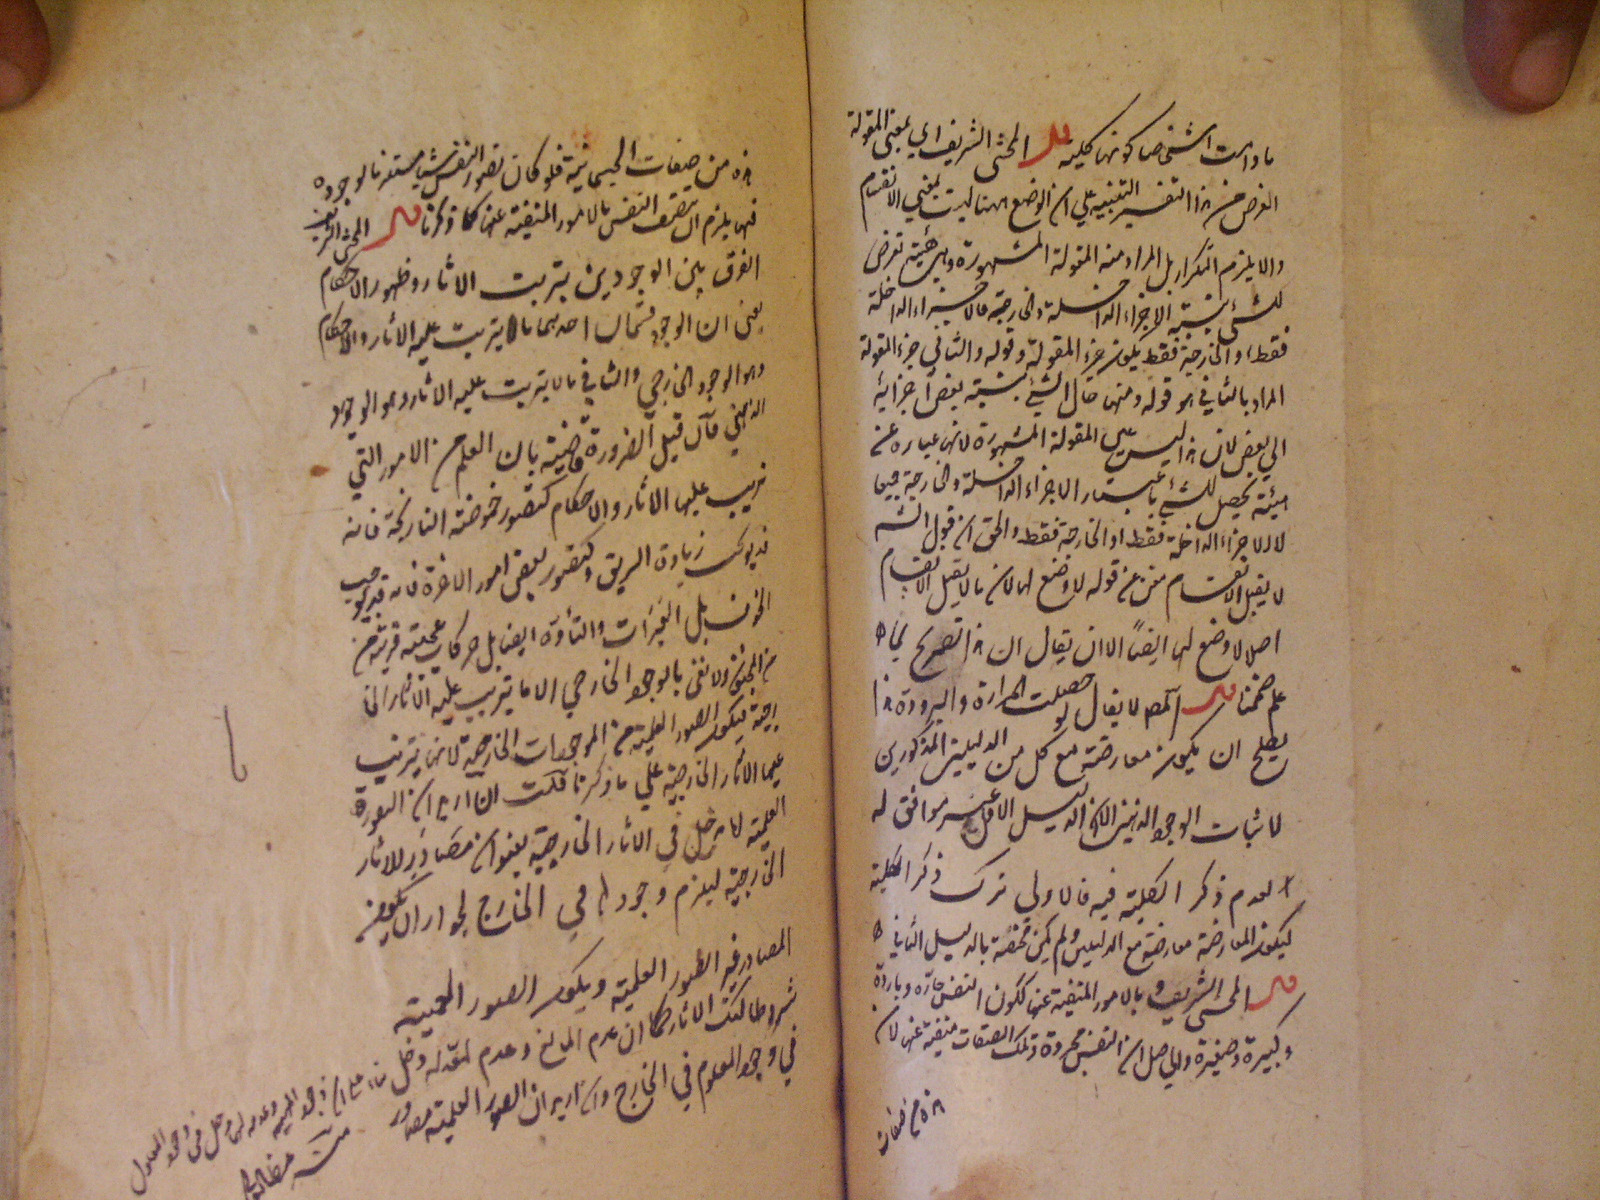 ما دامت اشخاصا كونها كلية قال المحشى الشريف اي بمعنى المقولة
الغرض من هذا التفسير التنبيه علي ان الوضع ههنا ليست بمعني الانقسام
والا يلزم التكرار بل المراد منه المقولة المشهورة وهي هيئة تعرض
للشئ بنسبة الاجزاء الداخلة والخارجية فالاجزاء الداخلة
فقط او الخارجة فقط يكون جزء المقولة وقوله والثاني جزء المقولة
المراد بالثاني هو قوله ومنها حال الشئ بنسبة بعض اجزائه
الي بعض لان هذا ليس عين المقولة المشهورة لانها عبارة عن
هيئة يحصل للشئ باعتبار الاجزاء الداخلة والخارجة جميعا
لا للاجزاء الداخلة فقط او الخارجة فقط والحق ان قول الش
لا يقبل الانقسام مغن عن قوله لا وضع لها لان ما لا يقبل الانقسام
اصلا لا وضع لها ايضا الا ان يقال ان هذا تصريح بما
علم ضمنا قال المص لا يقال لو حصلت الحرارة والبرودة هذا
يصلح ان يكون معارضة مع كل من الدليلين المذكورين
لاثبات الوجود الذهني لكن الدليل الاول غير موافق له
لعدم ذكر الكلية فيه فالاولى ترك ذكر الكلية
ليكون المعارضة معارضة مع الدليلين ولم يكن مختصة بالدليل الثاني
قال المحشى الشريف وبالامور المنفية عنها ككون النفس حارة وباردة
وكبيرة وصغيرة والحاصل ان النفس مجردة وتلك الصفات منفية عنها لان
هذه من صفات
هذه من صفات الجسمانية فلو كان تصور النفس شيئا مستلزما لوجوده
فيها يلزم ان تتصف النفس بالامور المنفية عنها كما ذكرنا قال المحشى الشريف
الفرق بين الوجودين بترتب الاثار وظهور الاحكام
يعني ان الوجود قسمان احدهما ما يترتب عليه الاثار والاحكام
وهو الوجود الخارجي والثاني ما لا يترتب عليه الاثار وهو الوجود
الذهني فان قيل الضرورة قاضية بان العلم من الامور التي
ترتب عليها الاثار والاحكام كتصور حموضة النارنجة فانه
قد يوجب زيادة الريق وكتصور بعض امور الاخرة فانه قد يوجب
الخوف بل العبرات والتأوه ايضا بل حركات عجيبة قريبة من
من الجنون ولا نعني بالوجود الخارجي الا ما يترتب عليه الاثار الخا
رجية فيكون الصور العلمية من الموجودات الخارجية لانها يترتب
عليها الاثار الخارجية علي ما ذكرنا قلت ان اريد ان الصورة
العلمية لها دخل في الاثار الخارجية بعنوان مصادر للاثار
الخارجية ليلزم وجودها في الخارج لجواز ان يكون
المصادر غير الصور العلمية ويكون الصور العلمية
شروطا لتلك الاثار كما ان عدم المانع وعدم المعد له دخل
في وجود المعلوم في الخارج وان اريد ان الصور العلمية مصادر